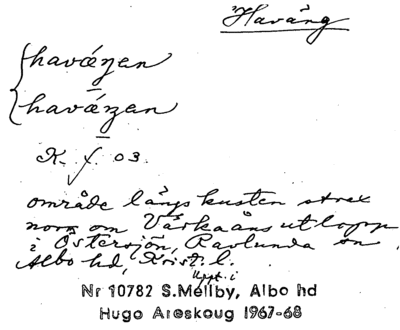 Haväng
havǽŋen
havǽŋen
K. f. 03.
område längs kusten strax
norr om Verkaåns utlopp
i Östersjön, Ravlunda sn,
Albo hd, Krist. l.
Uppt. i
Nr 10782 S.Mellby, Albo hd
Hugo Areskoug 1967-68